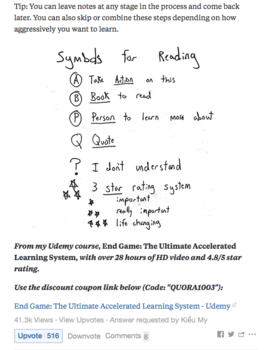 Tip: You can leave notes at any stage in the process and come back
later. You can also skip or combine these steps depending on how
aggressively you want to learn.
Symbols for Reading
A Take Action on this
B Book to read
P Person to learn more about
Q Quote
? I don't understand
3 star rating system
important
really important
life changing
From my Udemy course, End Game: The Ultimate Accelerated
Learning System, with over 28 hours of HD video and 4.8/5 star
rating.
Use the discount coupon link below (Code: "QUORA1003"):
End Game: The Ultimate Accelerated Learning System - Udemy
41.3k Views · View Upvotes · Answer requested by Kiều My
Upvote 516 Downvote Comments 8